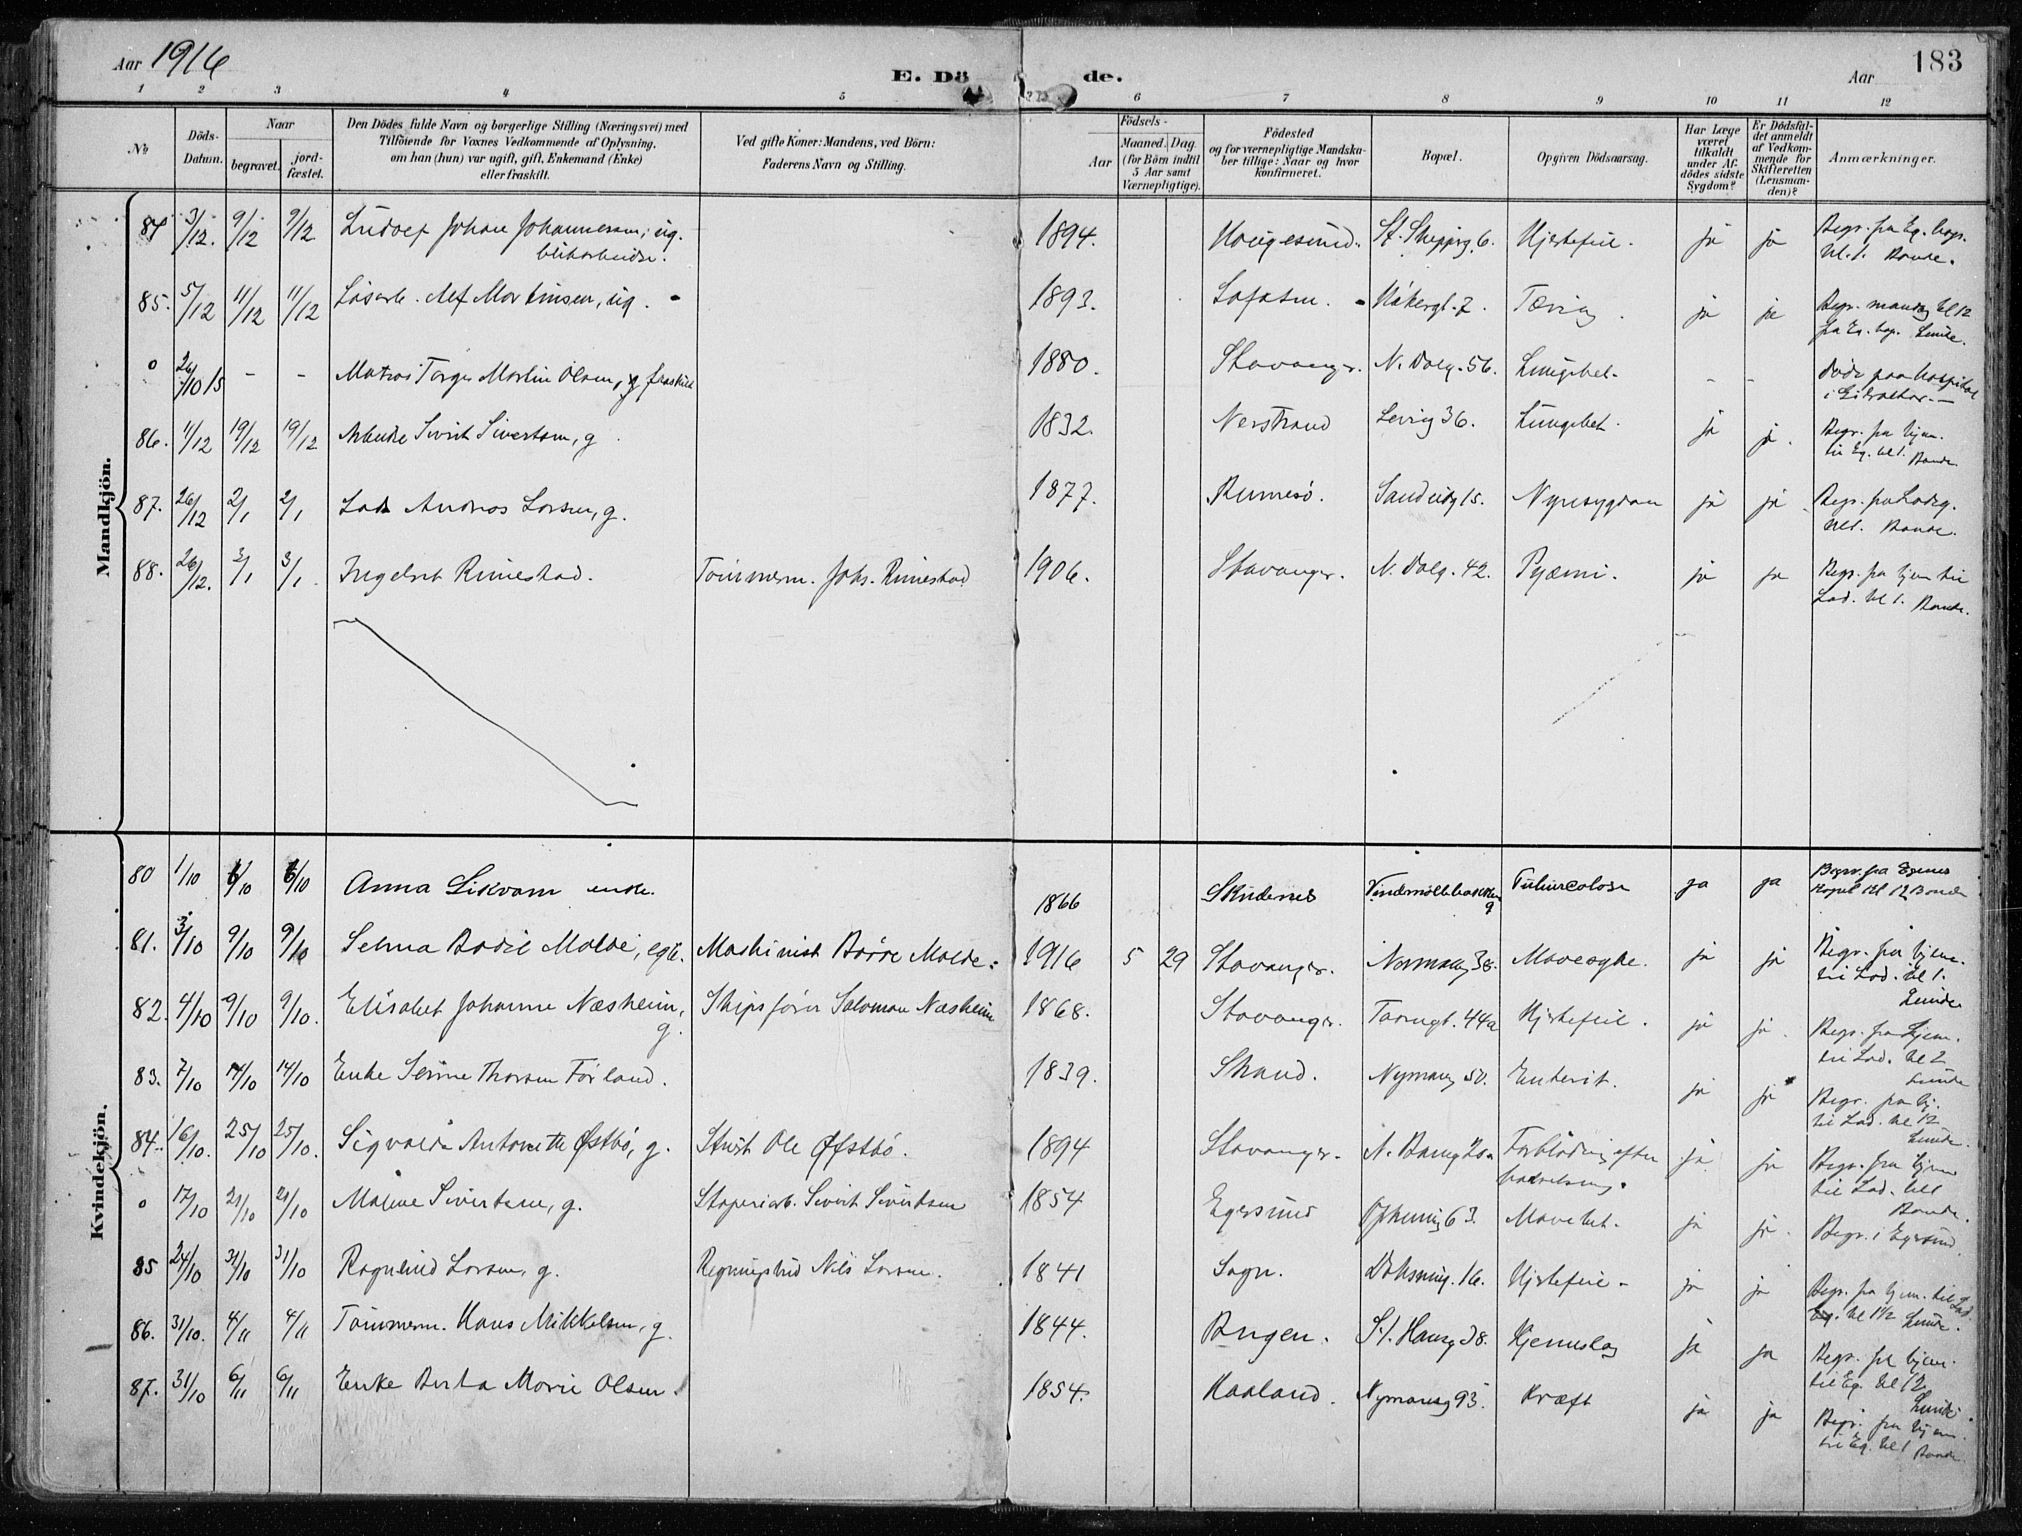 Aar 1916
E. Döde.
Aar
183
1 2 3 4 5 6 7 8 9 10 11 12
No
Döds-Datum.
Naar
begravet.
jord-fæstet.
Den Dödes fulde Navn og borgerlige Stilling (Næringsvei) med
Tilföiende for Voxnes Vedkommende af Oplysning,
om han (hun) var ugift, gift, Enkemand (Enke)
eller fraskilt.
Ved gifte Koner: Mandens, ved Börn:
Faderens Navn og Stilling.
Födsels-
Aar
Maaned. Dag
(for Börn indtil
5 Aar samt
Værnepligtige).
Födested
og for værnepligtige Mandska-
ber tillige: Naar og hvor
konfirmeret.
Bopæl.
Opgiven Dödsaarsag.
Har Læge
været
tilkaldt
under Af-
dödes sidste
Sygdom?
Er Dödsfal-
det anmeldt
af Vedkom-
mende for
Skifteretten
(Lensman-
den)?
Anmærkninger.
Mandkjön.
84 3/12. 9/12 9/12 Ludolf Johan Johannesen, ug. 1894. Hougesund. St. Skipprg. 6. Hjertefeil. ja ja Begr. fra Eg. kap.
kl. 1. Bonde.
85. 5/12 11/12 11/12 Løsarb. Alf Martinsen, ug. 1893. Tæring. ja ja Begr. mandag kl 12
fra Eg. kap. Lunde.
o 26/10 15 - - Matros Torger Martin Olsen, fraskilt 1880. Stavanger. N. Dalg. 56. Lungebet. - - Døde paa hospital
i Gibraltar.
86. 11/12 19/12 19/12 Sivert Sivertsen, g. 1832. Nerstrand 36. Lungebet. ja ja. Begr. fra hjem.
til Eg. kl 1. Bonde.
87. 26/12 2/1 2/1 Andreas Larsen, g. 1877. Rennesø. 15. Nyresygdom ja ja Begr. fra Ladeg.
kl 1. Bonde.
88. 26/12. 3/1 3/1. Ingebret Rimestad. Tømmerm. Johs. Rimestad 1906. Stavanger. N. Dalg. 42. Pyæmi. ja ja Begr. fra hjem til
Lad. kl 1. Bonde.
Kvindekjön.
80 1/10 6/10 6/10 Anna Likvam enke. 1866 Skudenes 9 Tuberculose ja ja Begr. fra Egenes
Kapel Kl 12 Bonde
81. 3/10 9/10 9/10 Selma Bodil Molde, egte. Maskinist Børre Molde. 1916 5 29 Stavanger. Normansg 38. Mavesyke. ja ja Begr. fra hjem.
til Lad. kl 1.
Lunde
82. 4/10 9/10 9/10. Elisabet Johanne Næsheim, g. Skipsfører Salomon Næsheim 1868. Stavanger. Taarngt. 44a Hjertefeil. ja ja. Begr. fra hjem.
til Lad. kl 2
Lunde
83. 7/10 14/10 14/10 Enke Serine Thorsen Førland. 1839. Strand. Nymansg 50. Enterit. ja ja Begr. fra hj.
til Lad. kl 12
Lunde.
84. 16/10. 25/10 25/10. Sigvalda Antonette Østbø, g. Ole Østbø. 1894 Stavanger. N. Bang 20a Forblødning efter ja ja Begr. fra hjem
til Lad. kl 1
Bonde.
o 17/10 21/10 21/10 Maline Sivertsen, g. Stoperiarb. Sivert Sivertsen 1854 Egersund 63. Mavebet. ja ja. Begr. i Egersund.
85 24/10 31/10 31/10 Ragnhild Larsen, g. Nils Larsen. 1841 Sogn. 16. Hjertefeil - ja ja Begr. fra hjem. til Lad
kl 1½ Lunde.
86. 31/10. 4/11 4/11 Tømmerm. Hans Mikkelsen, g. 1844. Bergen. St. Hansg 38. Hjerneslag ja ja Begr. fra hjem.
til Eg. kl 12
Lunde.
87. 31/10 6/11 6/11 Enke Berta Marie Olsen. 1854. Haaland. Nymansg 93. Kræft ja ja Begr. fra hjem
til Eg. kl 1 Bonde.